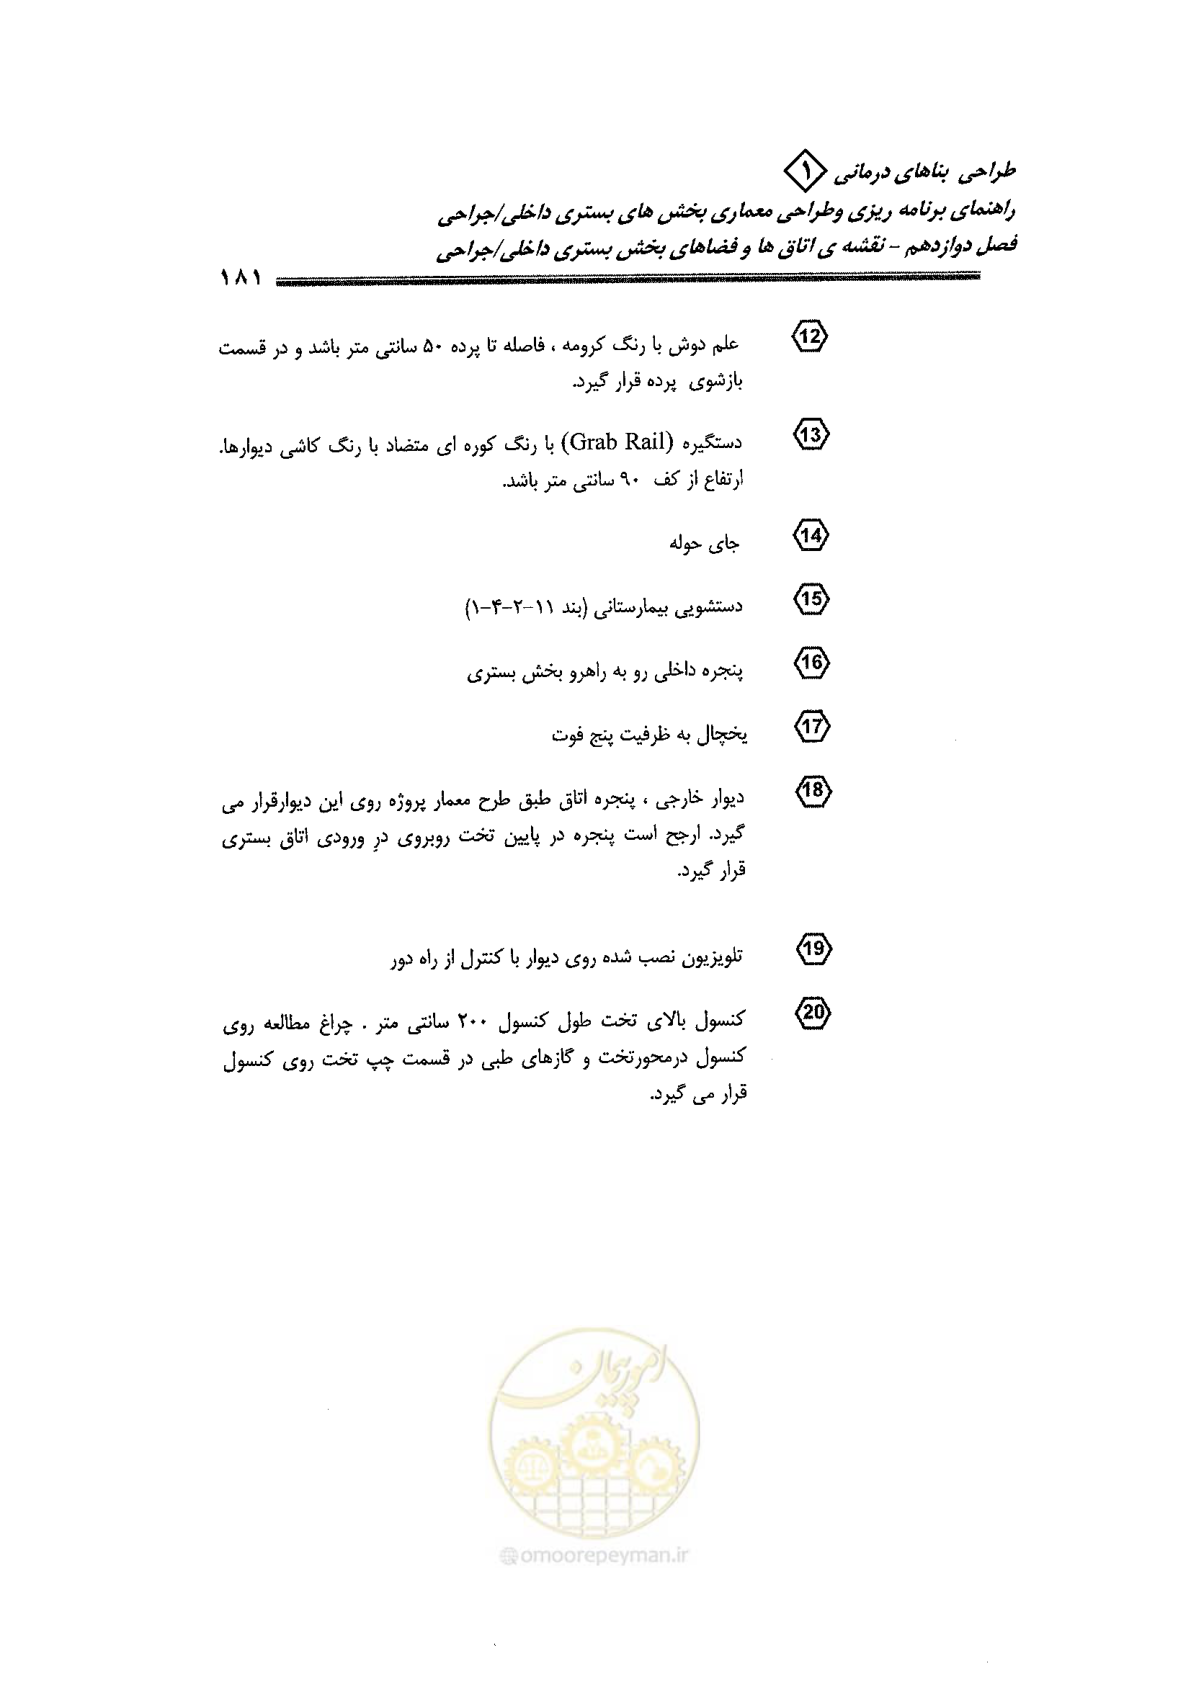 طراحی بناهای درمانی ۱
راهنمای برنامه ریزی وطراحی معماری بخش های بستری داخلی/جراحی
فصل دوازدهم - نقشه ی اتاق ها و فضاهای بخش بستری داخلی/جراحی
۱۸۱
12 علم دوش با رنگ کرومه ، فاصله تا پرده ۵۰ سانتی متر باشد و در قسمت
بازشوی پرده قرار گیرد.
13 دستگیره (Grab Rail) با رنگ کوره ای متضاد با رنگ کاشی دیوارها.
ارتفاع از کف ۹۰ سانتی متر باشد.
14 جای حوله
15 دستشویی بیمارستانی (بند ۱۱-۲-۴-۱)
16 پنجره داخلی رو به راهرو بخش بستری
17 یخچال به ظرفیت پنج فوت
18 دیوار خارجی ، پنجره اتاق طبق طرح معمار پروژه روی این دیوارقرار می
گیرد. ارجح است پنجره در پایین تخت روبروی درِ ورودی اتاق بستری
قرار گیرد.
19 تلویزیون نصب شده روی دیوار با کنترل از راه دور
20 کنسول بالای تخت طول کنسول ۲۰۰ سانتی متر . چراغ مطالعه روی
کنسول درمحورتخت و گازهای طبی در قسمت چپ تخت روی کنسول
قرار می گیرد.
امور پیمان
@omoorepeyman.ir